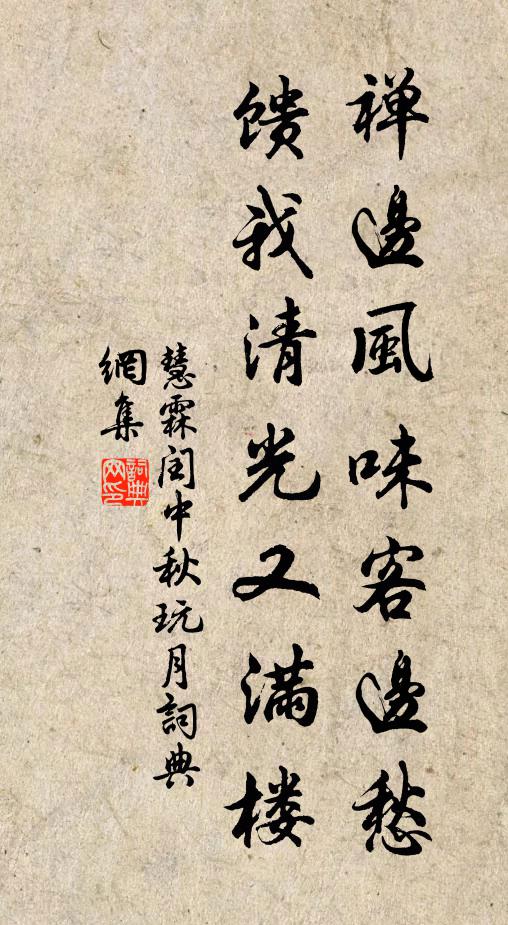 禅邊風味客邊愁
馈我清光又滿楼
慧霖闰中秋玩月詞典
網集
詞典网印